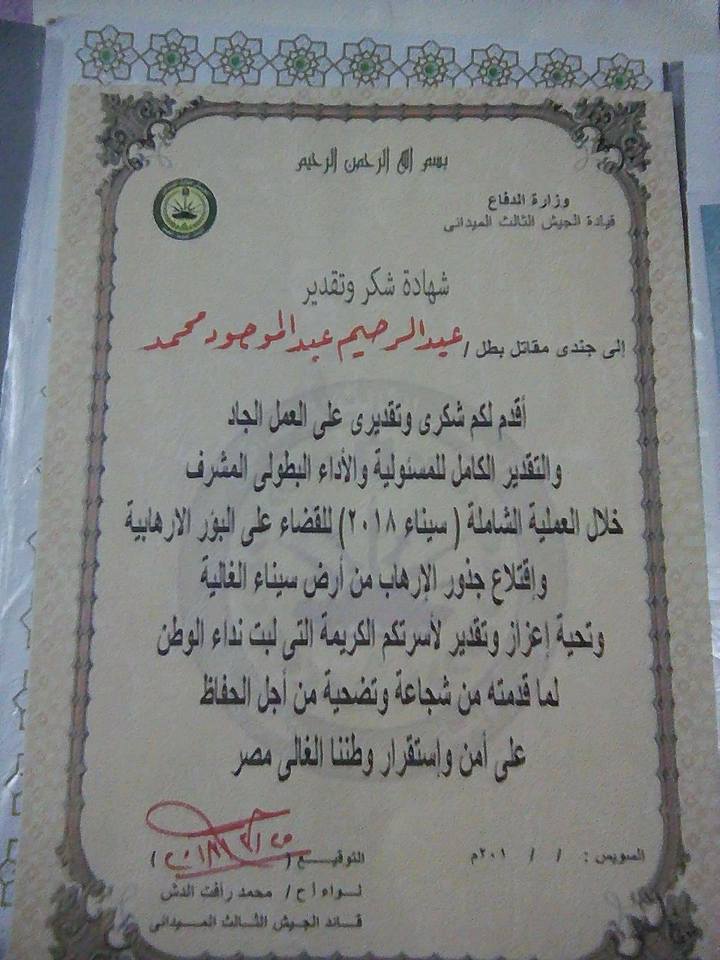 بسم الله الرحمن الرحيم
وزارة الدفاع
قيادة الجيش الثالث الميدانى
شهادة شكر وتقدير
إلى جندى مقاتل بطل / عبدالرحيم عبدالموجود محمد
أقدم لكم شكرى وتقديرى على العمل الجاد
والتقدير الكامل للمسئولية والأداء البطولى المشرف
خلال العملية الشاملة ( سيناء ٢٠١٨ ) للقضاء على البؤر الارهابية
وإقتلاع جذور الإرهاب من أرض سيناء الغالية
وتحية إعزاز وتقدير لأسرتكم الكريمة التى لبت نداء الوطن
لما قدمته من شجاعة وتضحية من أجل الحفاظ
على أمن وإستقرار وطننا الغالى مصر
السويس : / / ٢٠١م
التوقيـــع ( )
لـــواء أ ح / محمد رأفت الدش
قـائد الجيـش الثـالث المـيـدانى